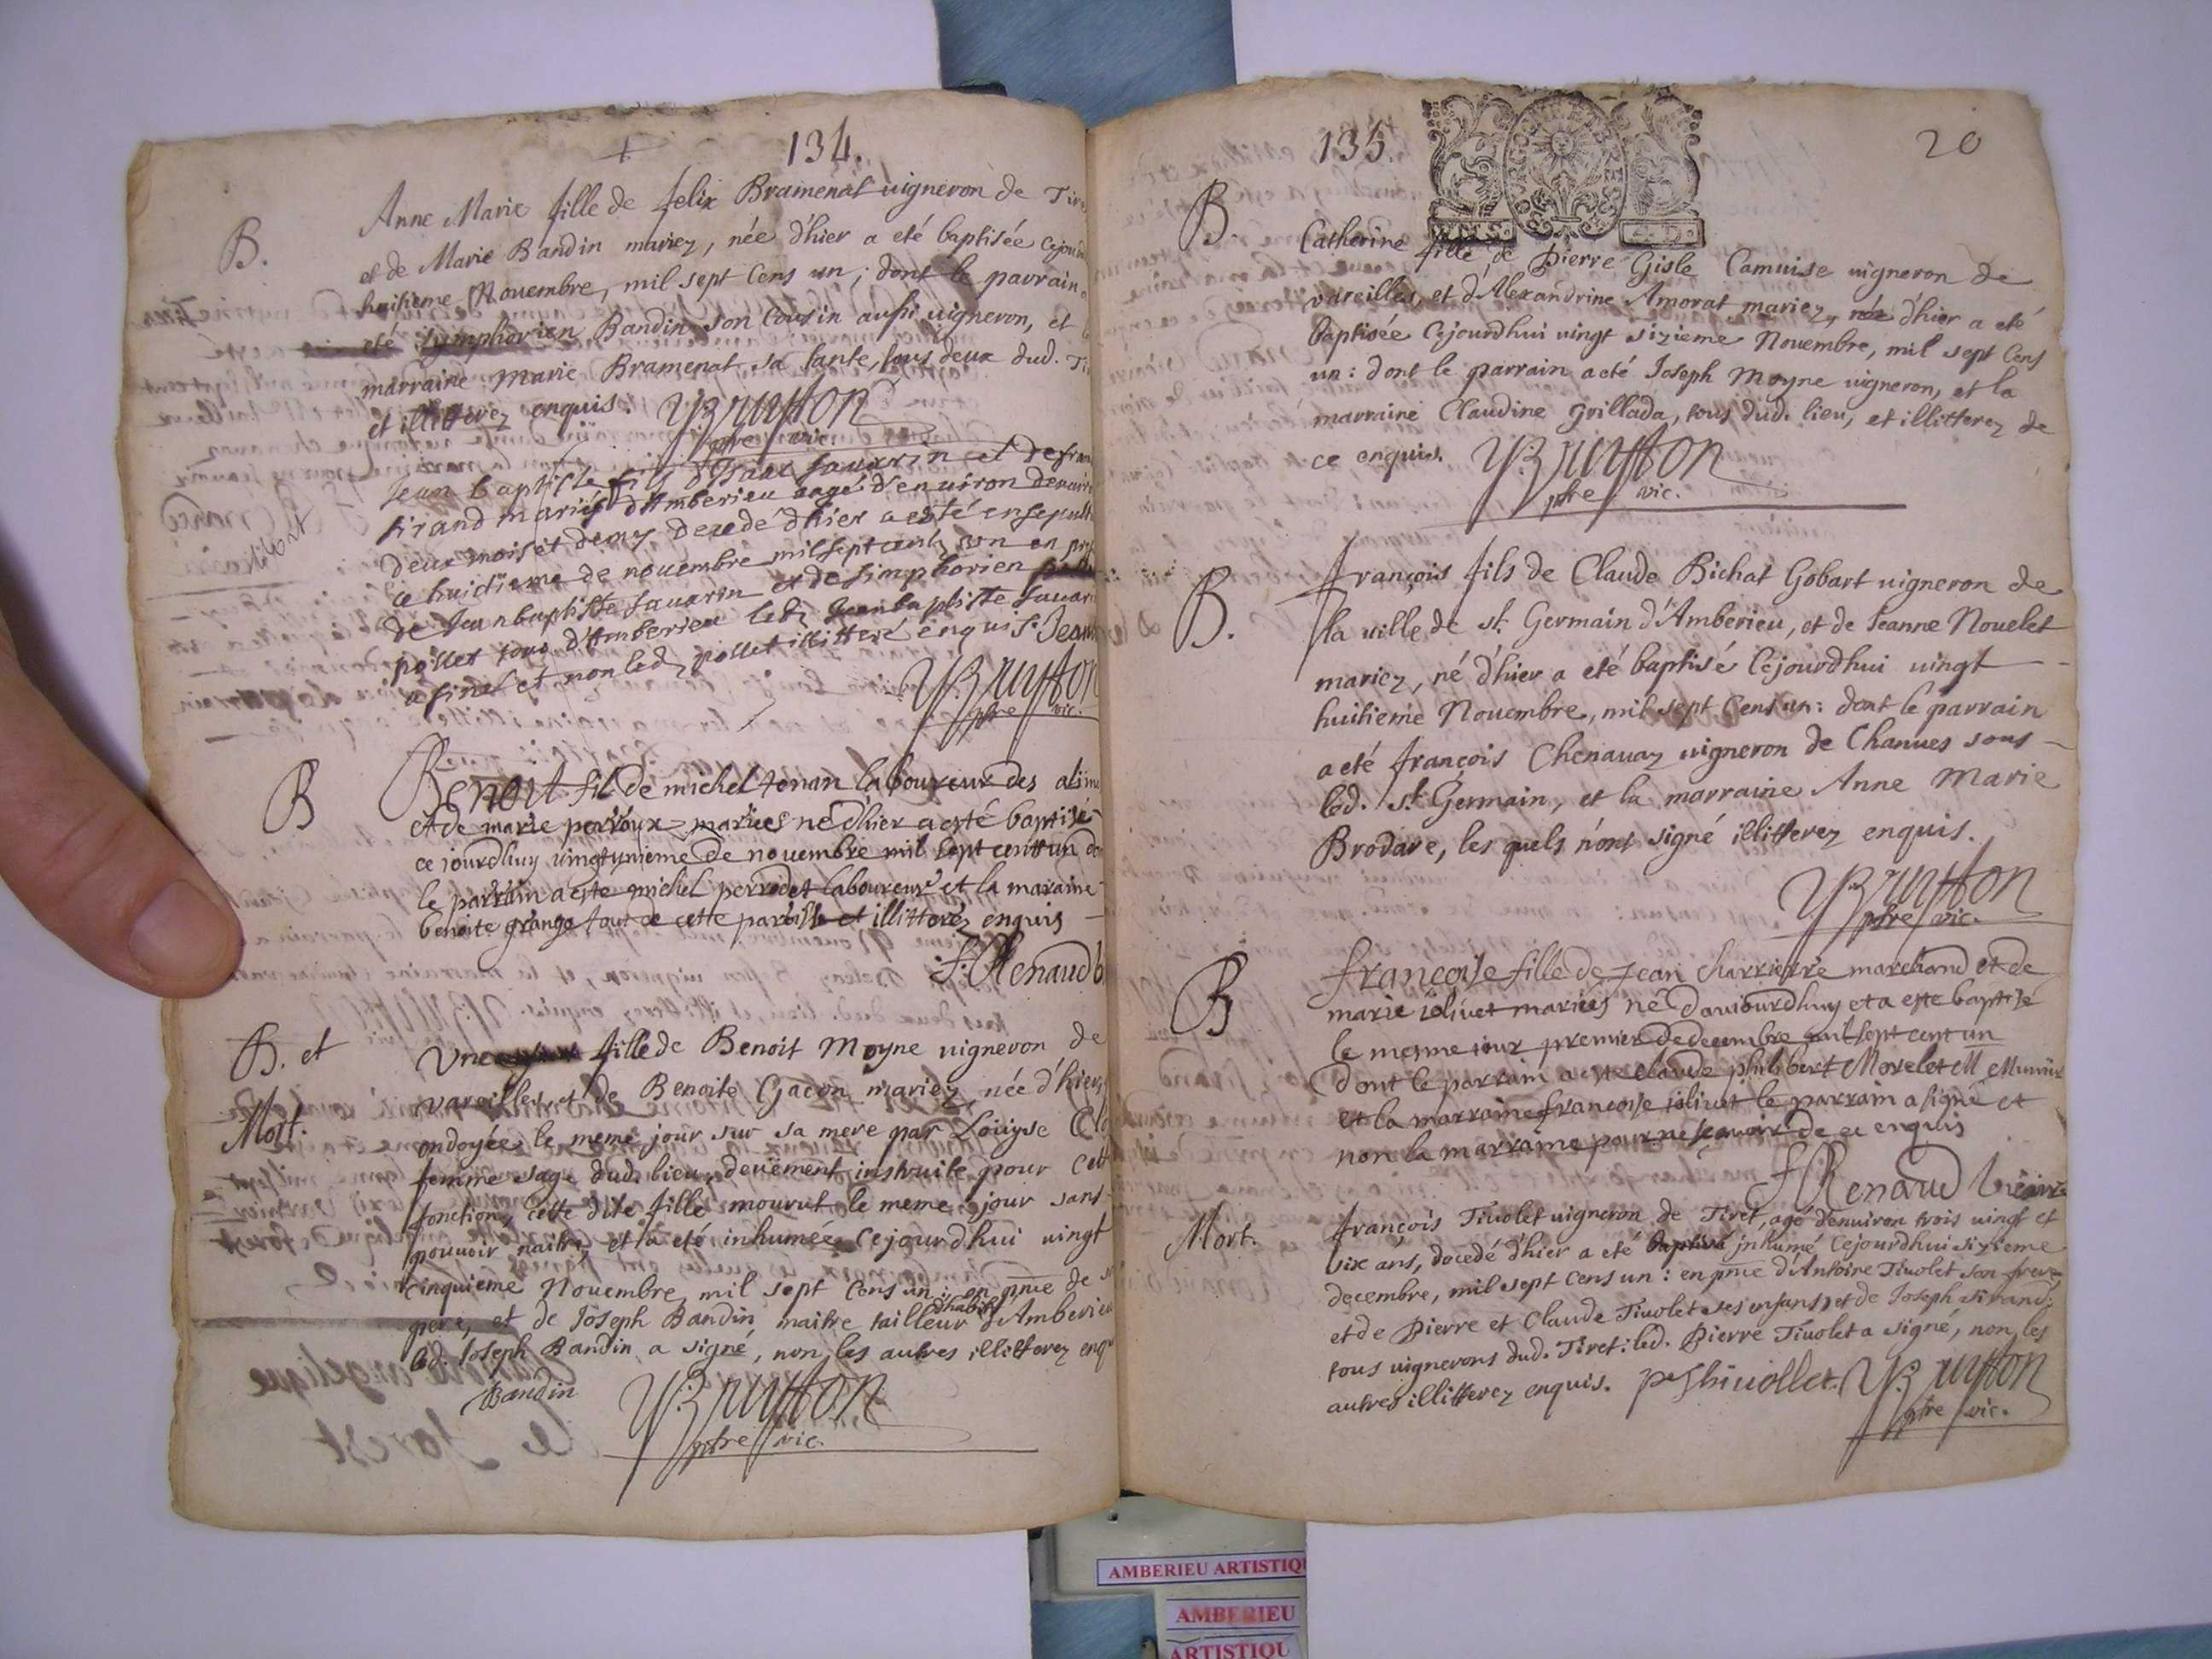 134.
B.
Anne Marie fille de felix Bramenat vigneron de Tire
et de Marie Bandin mariez, née d'hier a eté baptisée Cejourd
huitieme Novembre, mil sept Cens un; dont le parrain a
eté Symphorien Bandin son Cousin aussi vigneron, et
marraine Marie Bramenat sa tante, tous deux dud. Ti
et illitterez enquis. Brutton
ptre vic.
Mort
Jean baptiste fils d'Isaac savarin et de fran
sirand mariés d'Amberieu aagé d'environ
deux mois et demy decedé d'hier a esté ensepult
ce huictieme de novembre mil sept cents un en
de Jean baptiste savarin et de simphorien
pollet tous d'Amberieu led. Jean baptiste savari
a siné et non led. pollet illitteré enquis. Jean
Brutton
ptre vic.
B
Benoit fil de michel tenan laboureur des
et de marie perroux mariés né d'hier a esté baptisé
ce jourdhuy vingtunieme de novembre mil sept cent un do
le parrain a este michel perrodet laboureur et la maraine
benoite grange tout de cette paroisse et illitterez enquis
f. Renaud
B. et
Mort.
Une fille de Benoit Moyne vigneron de
vareilles, et de Benoite Gacon mariez, née d'hier,
ondoyée le meme jour sur sa mere par Loüyse
femme sage dud. lieu, deuëment instruite pour cett
fonction, cette dite fille mourut le meme jour sans
pouvoir naitre, et a eté inhumée Cejourdhui vingt
cinquieme Novembre mil sept Cens un: en pnce de
pere, et de Joseph Bandin maitre tailleur d'habits d'Amberieu
led. Joseph Bandin a signé, non les autres illitterez enqu
Bandin Brutton
ptre vic.
135.
20
B.
Catherine fille de Pierre Gisle Camuise vigneron de
vareilles, et d'Alexandrine Amorat mariez, née d'hier a eté
baptisée Cejourdhui vingt sixieme Novembre, mil sept Cens
un: dont le parrain a eté Joseph Moyne vigneron, et la
marraine Claudine Grillada, tous dud. lieu, et illitterez de
ce enquis. Brutton
ptre vic.
B.
François fils de Claude Bichat Gobart vigneron de
la ville de st. Germain d'Amberieu, et de Jeanne Nouelet
mariez, né d'hier a eté baptisé Cejourdhui vingt
huitieme Novembre, mil sept Cens un: dont le parrain
a eté François Chenavaz vigneron de Chanves sous
led. st. Germain, et la marraine Anne Marie
Brodare, les quels n'ont signé illitterez enquis.
Brutton
ptre vic.
B
francoise fille de Jean charriere marchand et de
marie iolivet mariés né d'auiourdhuy et a este baptisé
le mesme iour premier de decembre mil sept cent un
dont le parrain a este claude philibert Morelet M
et la marraine francoise iolivet le parrain a signé et
non la marraine pour ne scavoir de ce enquis
f Renaud vicaire
Mort.
François Tivolet vigneron de Tiret, agé d'environ trois vingt et
six ans, decedé d'hier a eté baptisé inhumé Cejourdhui sixieme
decembre, mil sept Cens un: en pnce d'Antoine Tivolet son frere
et de Pierre et Claude Tivolet ses enfans, et de Joseph Sirand,
tous vignerons dud. Tiret: led. Pierre Tivolet a signé, non les
autres illitterez enquis. P Thivollet. Brutton
ptre vic.
AMBERIEU ARTISTIQU
AMBERIEU
ARTISTIQU